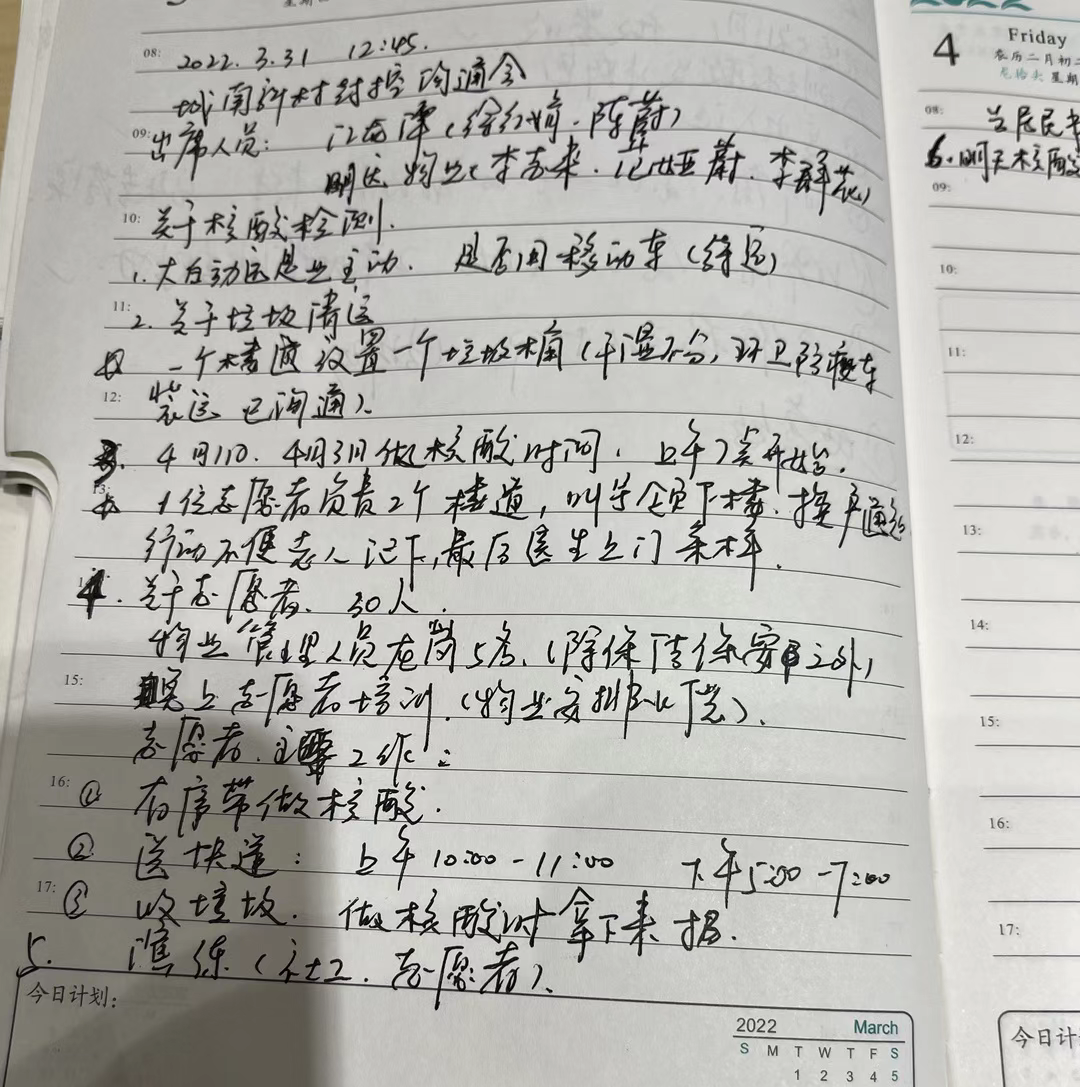 08:
2022.3.31 12:45.
城南新村封控沟通会
09:
出席人员:
明达物业(李
10:
关于核酸检测.
1.大白动 是否用移动车(待定)
11:
2.关于垃圾清运
一个楼道设置一个垃圾桶(干湿不分,环卫防疫车
12:
装运 已沟通).
3. 4月1日.4月3日做核酸时间.上午7点开始.
13:
1位志愿者负责2个楼道,叫 下楼.挨户通知
行动不便老人记下,最后医生上门采样.
4.关于志愿者.30人.
物业管理人员在岗5名.(除保洁保安 之外)
15:
晚上志愿者培训.(物业安排
志愿者.主要工作:
16:
① 有序带做核酸.
② 送快递: 上午10:00-11:00 下午5:00-7:00
17:
③ 收垃圾. 做核酸时拿下来
5. 演练(社工.志愿者).
今日计划:
2022 March
S M T W T F S
1 2 3 4 5
2022
4 Friday
农历二月初二
龙抬头 星期
08:
当居民
6.明天核酸
09:
10:
11:
12:
13:
14:
15:
16:
17:
今日计